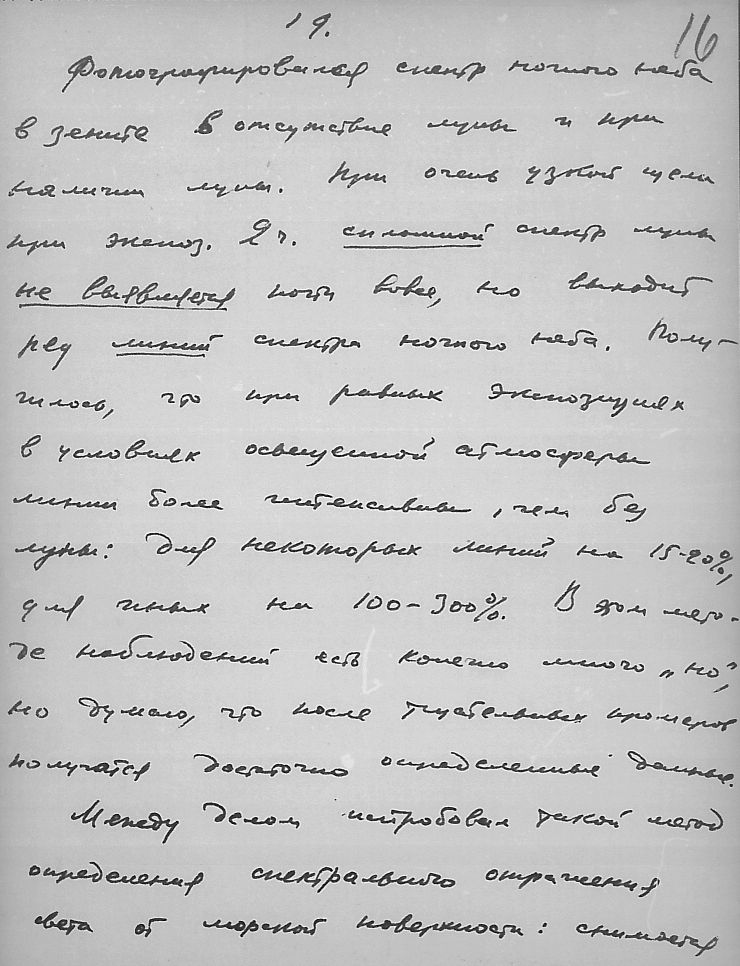 19.
16
Фотографировался спектр ночного неба
в зените в отсутствие луны и при
наличии луны. При очень узкой щели
при экспоз. 2 ч. сплошной спектр луны
не выявляется почти вовсе, но выходит
ряд линий спектра ночного неба. Полу-
чилось, что при равных экспозициях
в условиях освещенной атмосферы
линии более интенсивны, чем без
луны: для некоторых линий на 15-20%,
для иных на 100-300%. В этом мето-
де наблюдений есть конечно много „но",
но думаю, что после тщательных промеров
получатся достаточно определенные данные.
Между делом испробовал такой метод
определения спектрального отражения
света от морской поверхности: снимается